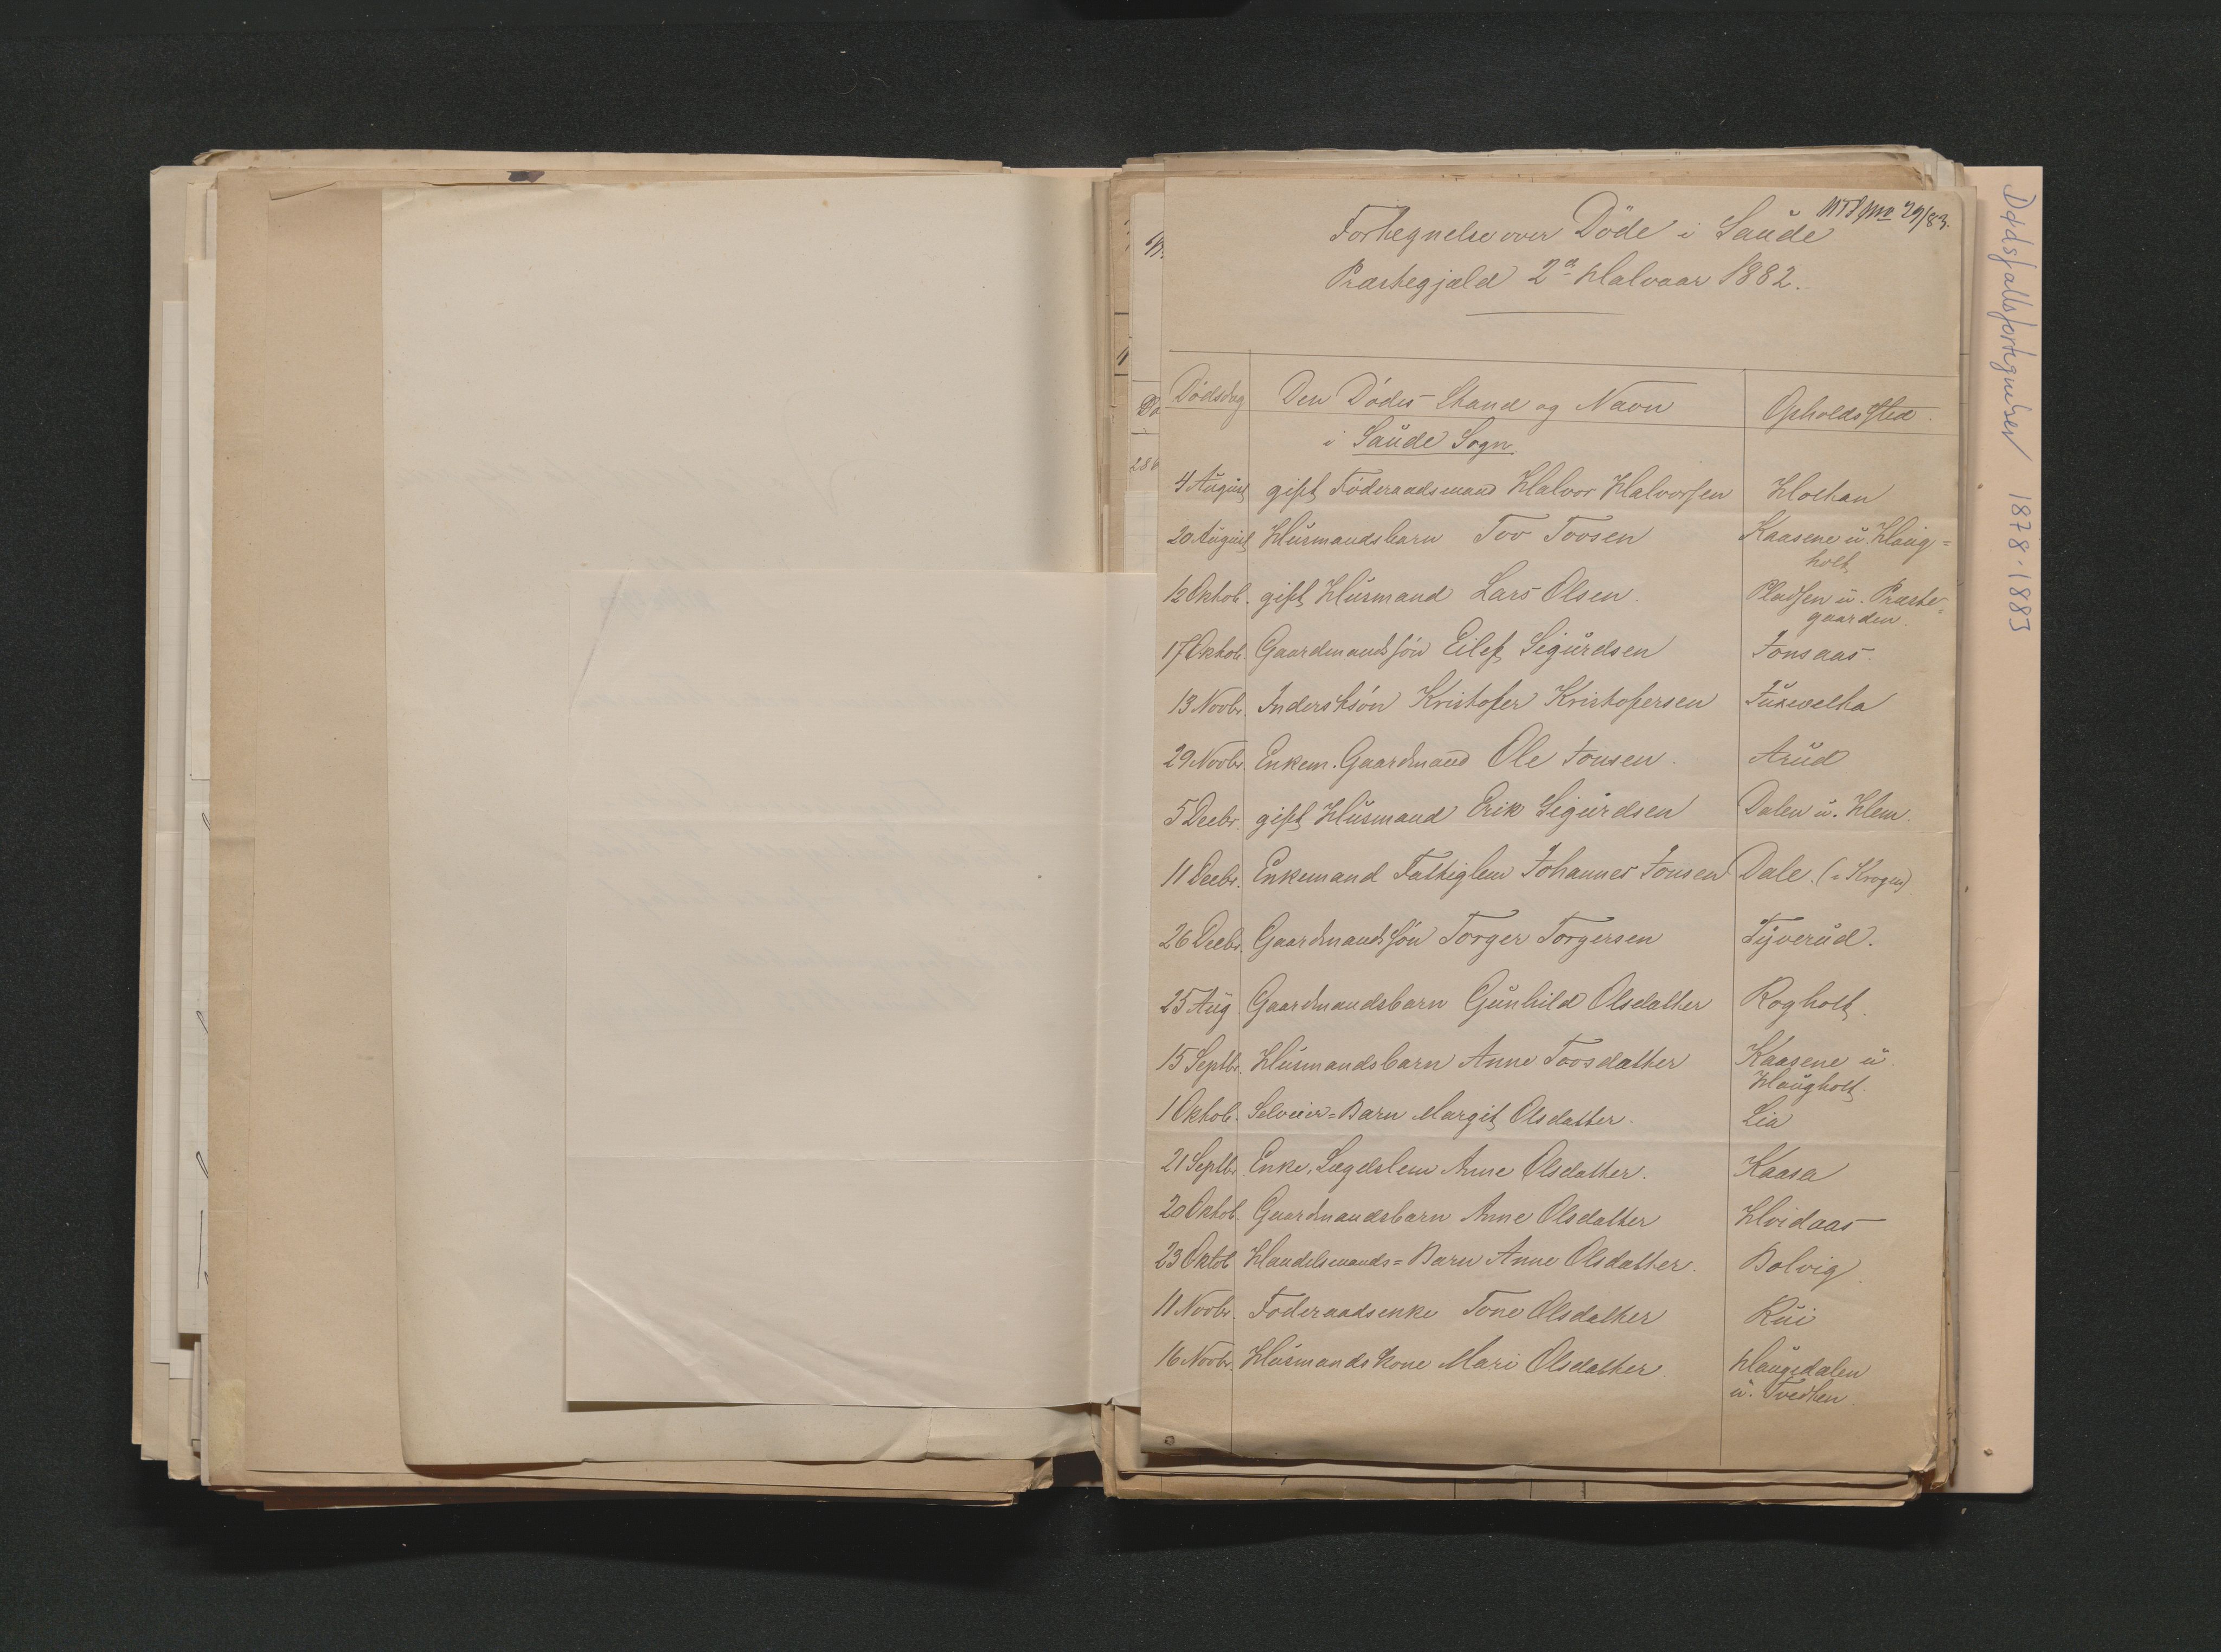 29/83.
Fortegnelse over Döde i Saude
Præstegjæld 2d Halvaar 1882.
Dödsdag Den Dödes Stand og Navn Opholdssted.
i Saude Sogn.
4 August gift Föderaadsmand Halvor Halvorsen Holtan
20 August Husmandsbarn Tov Tovsen Kaasene u. Haug=
holt
12 Oktob. gift Husmand Lars Olsen. Pladsen u. Præste=
gaarden.
17 Oktob. Gaardmandssön Eilef Sigurdsen Jonsaas.
13 Novbr. Inderstsön Kristofer Kristofersen
29 Novbr. Enkem. Gaardmand Ole Jonsen. Arud
5 Decbr. gift Husmand Erik Sigurdsen Dalen u. Hem.
11 Decbr. Enkemand Fattiglem Johannes Jonsen Dale. (u Krogen)
26 Decbr. Gaardmandssön Torger Torgersen Tyverud.
25 Aug Gaardmandsbarn Gunhild Olsdatter Rogholt.
15 Septbr. Husmandsbarn Anne Tovsdatter Kaasene u
Haugholt.
1 Oktob. Selveier=Barn Margit Olsdatter. Lia
21 Septbr. Enke, Lægdslem Anne Olsdatter. Kaasa
20 Oktob. Gaardmandsbarn Anne Olsdatter Hvidaas
23 Oktob Handelsmands=Barn Anne Olsdatter. Bolvig
11 Novbr. Föderaadsenke Tone Olsdatter Rui
16 Novbr. Husmandskone Mari Olsdatter. Haugedalen
u. Tvedten.
Dødsfallsfortegnelser 1878-1883